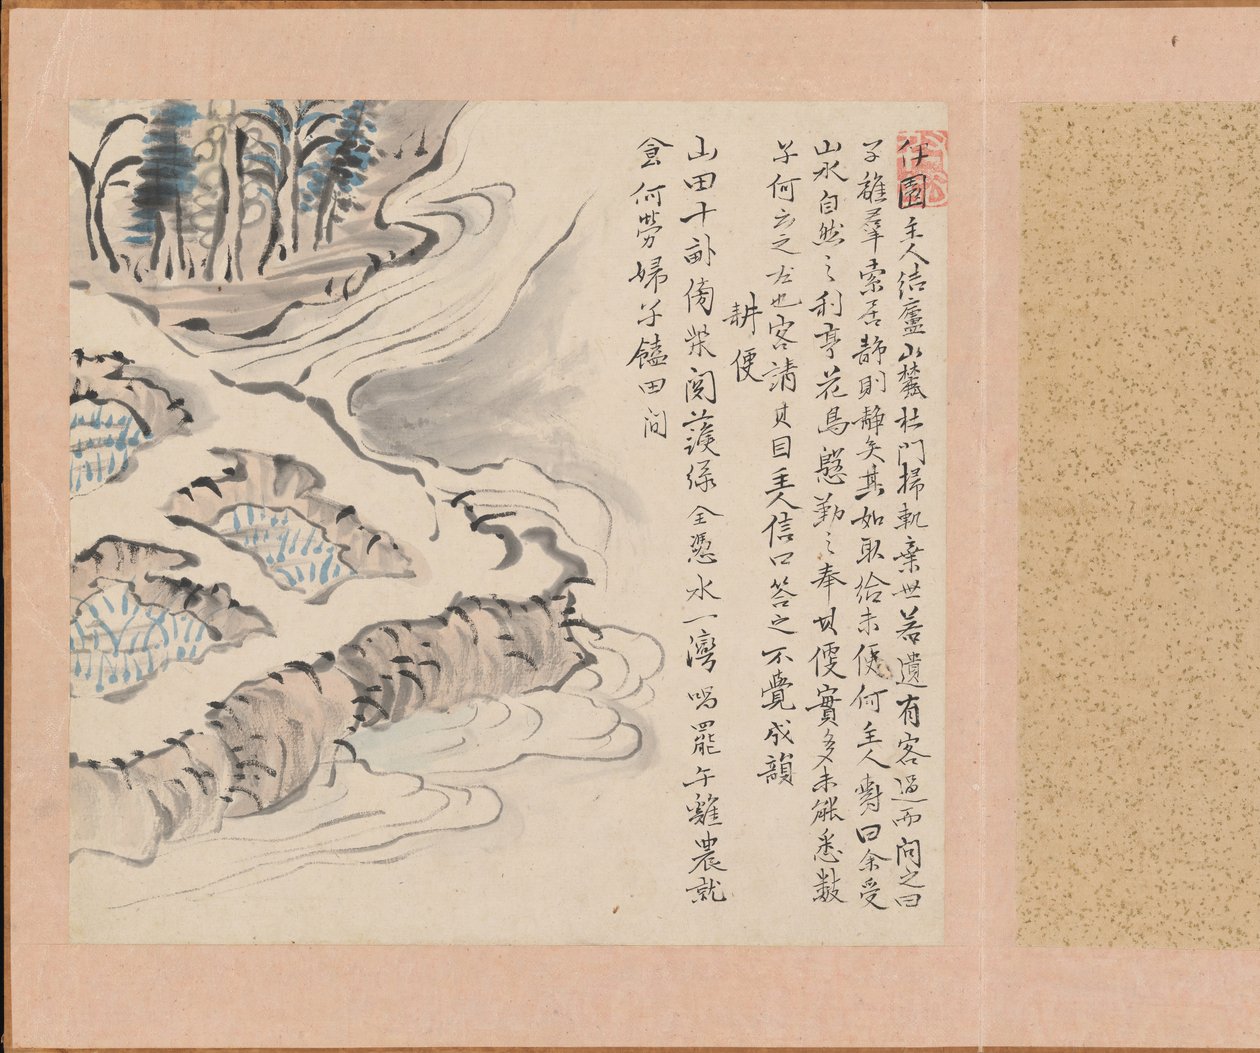 伊園主人結廬山麓杜門掃軌棄世若遺有客過而問之曰
子離羣索居静則静矣其如取給未便何主人對曰余受
山水自然之利享花鳥慇勤之奉其便實多未能悉數
子何云之左也客請其目主人信口答之不覺成韻
耕便
山田十畝傍柴関護緑全憑水一灣唱罷午雞農就
食何勞婦子饁田間